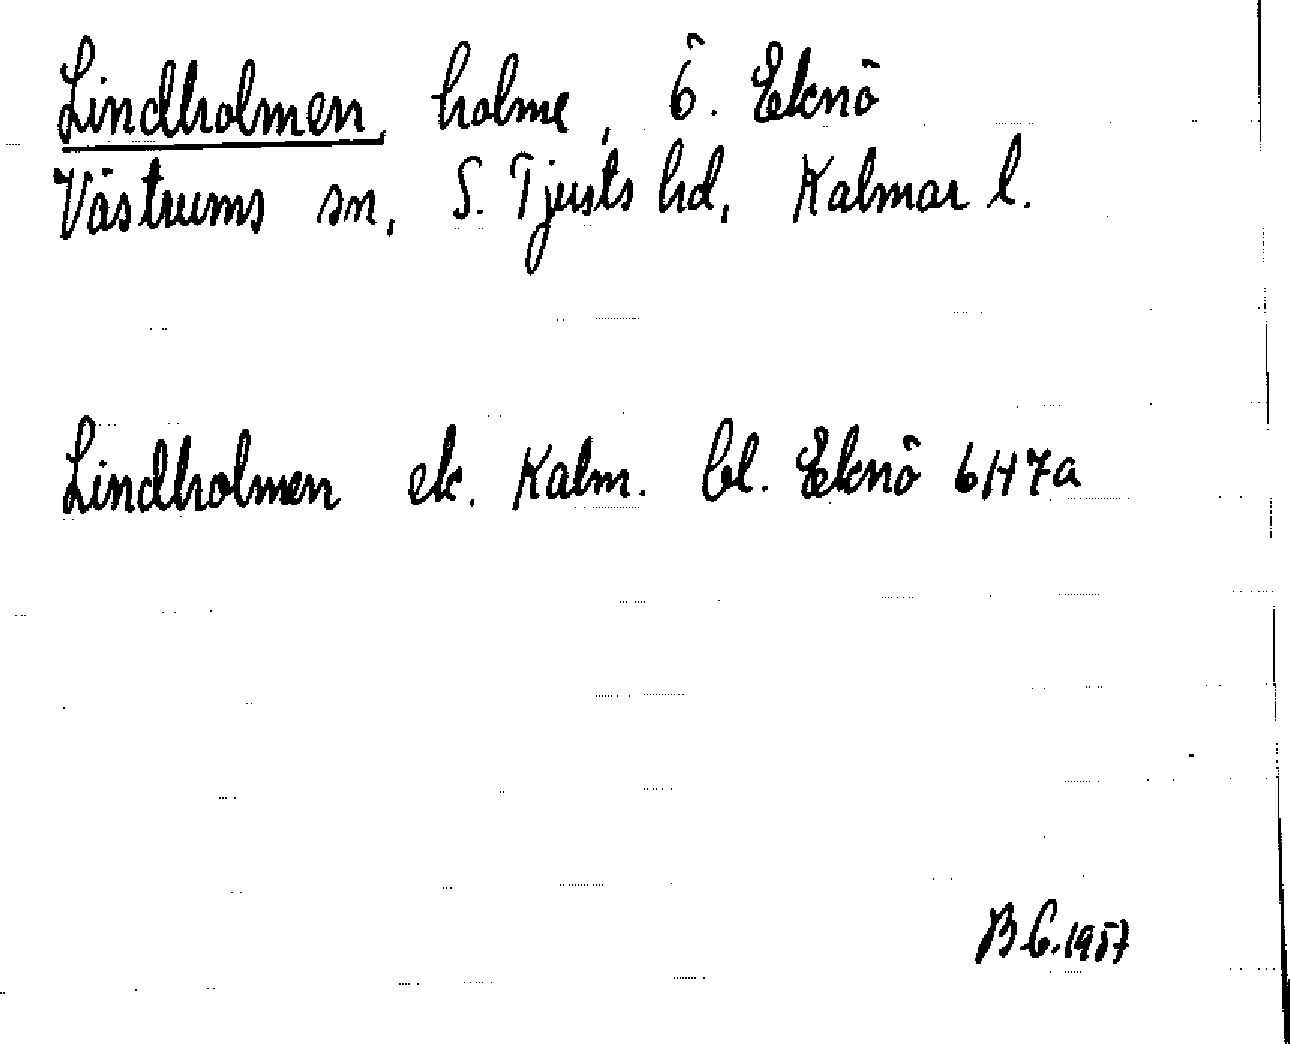 Lindholmen, holme, ö. Eknö
Västrums sn, S. Tjusts hd, Kalmar l.
Lindholmen ek. Kalm. bl. Eknö 6H7a
B C. 1957